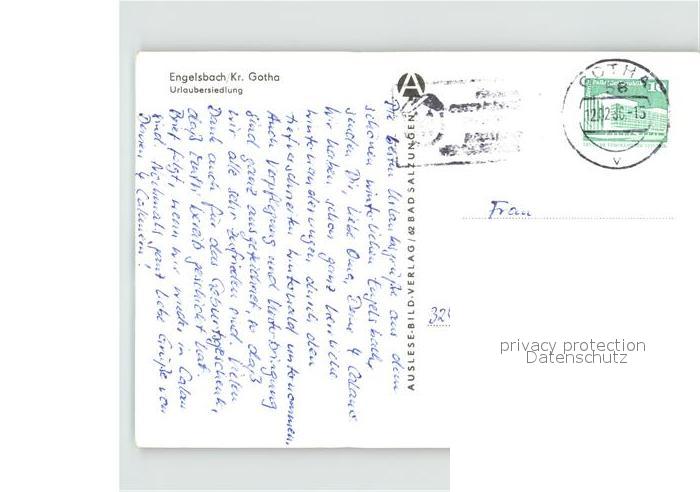 Engelsbach/Kr. Gotha
Urlaubersiedlung
Die besten Urlaubsgrüße aus dem
schönen winterlichen Engelsbach
senden Dir, liebe Oma, Deine 4 Calauer
Wir haben schon ganz herrliche
Winterwanderungen durch den
tiefverschneiten Winterwald unternommen.
Auch Verpflegung und Unterbringung
sind ganz ausgezeichnet, so daß
wir alle sehr zufrieden sind. Vielen
Dank auch für das Geburtstagsgeschenk,
daß Mutti bereits geschickt hat.
Brief folgt, wenn wir wieder in Calau
sind. Nochmals ganz liebe Grüße von
Deinen 4 Calauern!
AUSLESE-BILD-VERLAG / 62 BAD SALZUNGEN
A
GOTHA
58
12.02.86.-15
V
10
Frau
32
privacy protection
Datenschutz